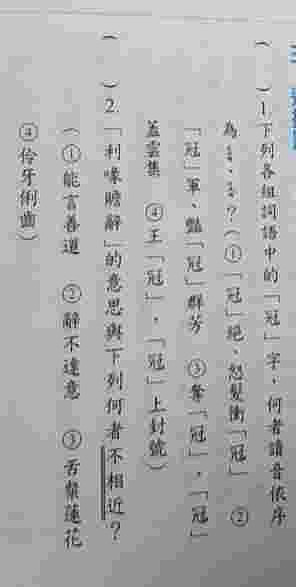 (　)1.下列各組詞語中的「冠」字，何者讀音依序
為ㄍㄨㄢ、ㄍㄨㄢˋ？(①「冠」絕、怒髮衝「冠」　②
「冠」軍、豔「冠」群芳　③奪「冠」，「冠」
蓋雲集　④王「冠」，「冠」上封號)
(　)2.「利喙贍辭」的意思與下列何者不相近？
(①能言善道　②辭不達意　③舌粲蓮花
④伶牙俐齒)